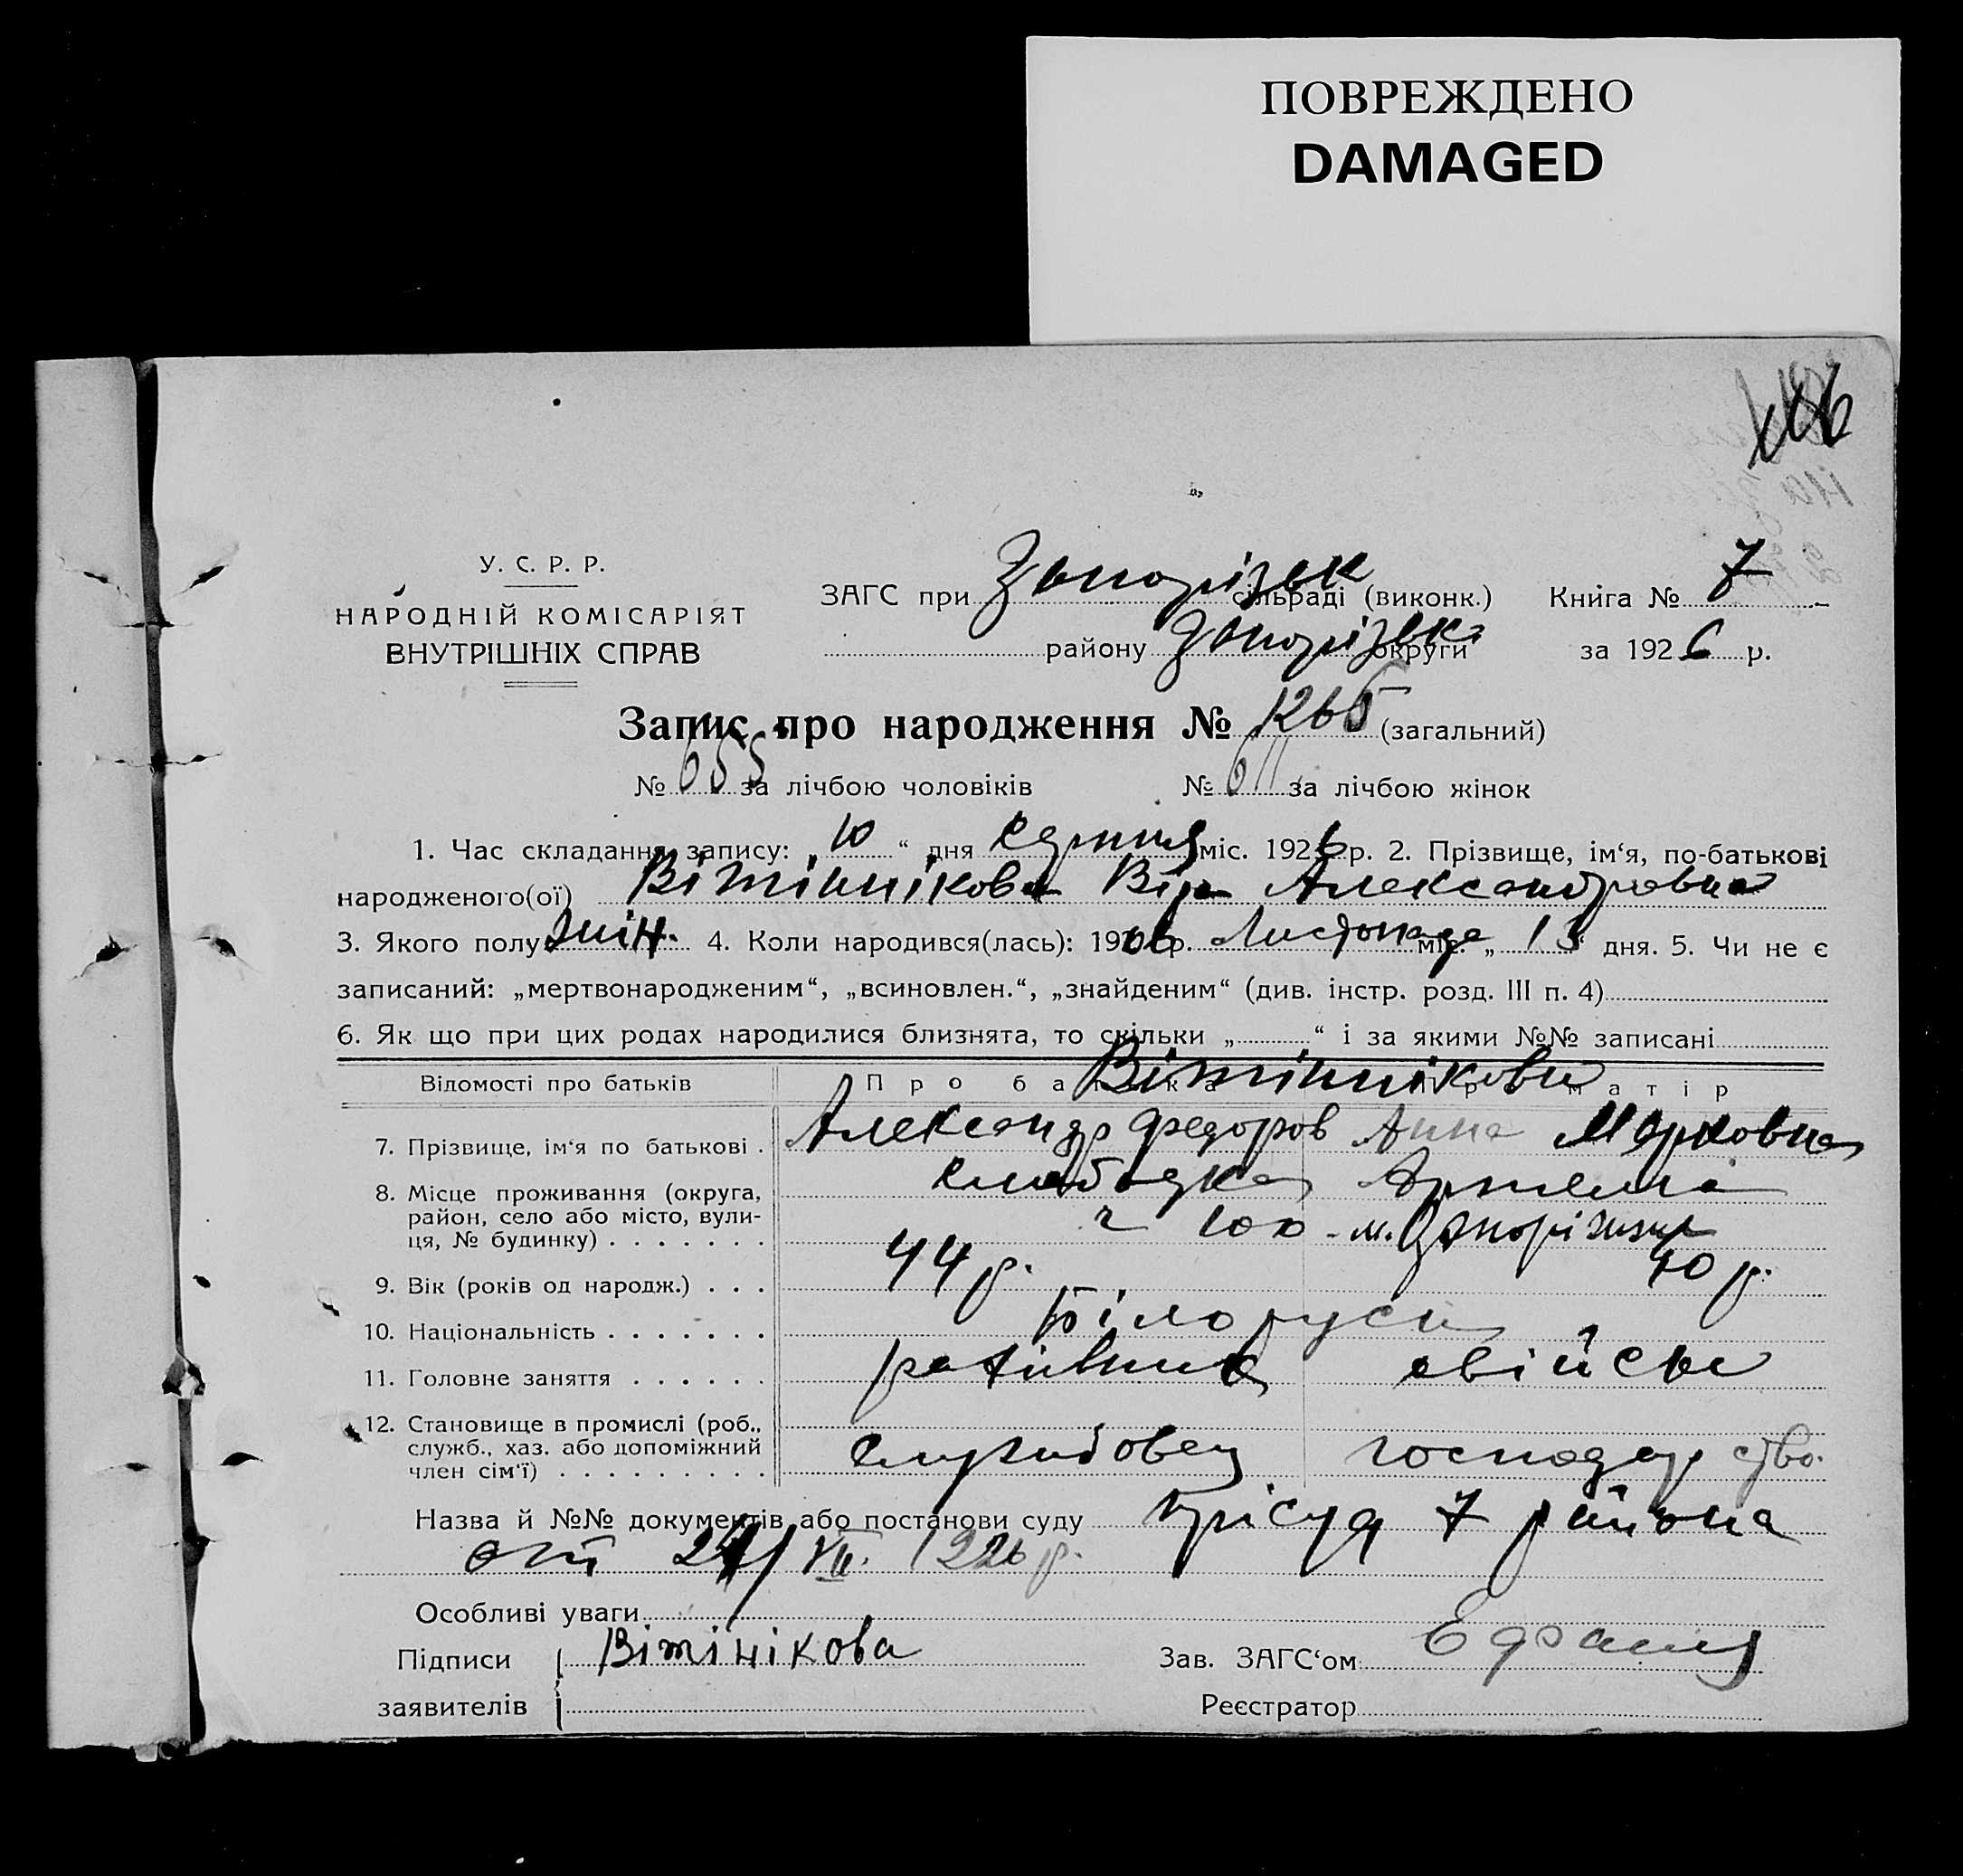 ПОВРЕЖДЕНО
DAMAGED
У. С. Р. Р.
НАРОДНІЙ КОМІСАРІЯТ
ВНУТРІШНІХ СПРАВ
ЗАГС при Запорізьк сільраді (виконк.) Книга № 7
району Запорізьк округи за 1926 р.
Запис про народження № 1266 (загальний)
№ 655 за лічбою чоловіків № 611 за лічбою жінок
1. Час складання запису: „10“ дня Серпня міс. 1926 р. 2. Прізвище, ім‘я, по-батькові
народженого(ої) Вітіннікова Віра Александровна
3. Якого полу жін. 4. Коли народився(лась): 19 р. Листопада міс. „ “ дня. 5. Чи не є
записаний: „мертвонародженим“, „всиновлен.“, „знайденим“ (див. інстр. розд. III п. 4)
6. Як що при цих родах народилися близнята, то скільки „ “ і за якими №№ записані
Відомості про батьків Про батька Про матір
Вітіннікови
7. Прізвище, ім‘я по батькові . Александр Федоров Анна Марковна
8. Місце проживання (округа, слободка
район, село або місто, вули-
ця, № будинку) . . . . . . . м. Запоріжжя
9. Вік (років од народж.) . . . 44 р. 40 р.
10. Національність . . . . . . . Білоруси
11. Головне заняття . . . . . . рахівник свійське
12. Становище в промислі (роб.,
служб., хаз. або допоміжний службовец господарство.
член сім‘ї) . . . . . . . . .
Назва й №№ документів або постанови суду Прісуд 7 района
от 24/VII. 1926 р.
Особливі уваги
Підписи Вітінікова Зав. ЗАГС‘ом
заявителів Реєстратор